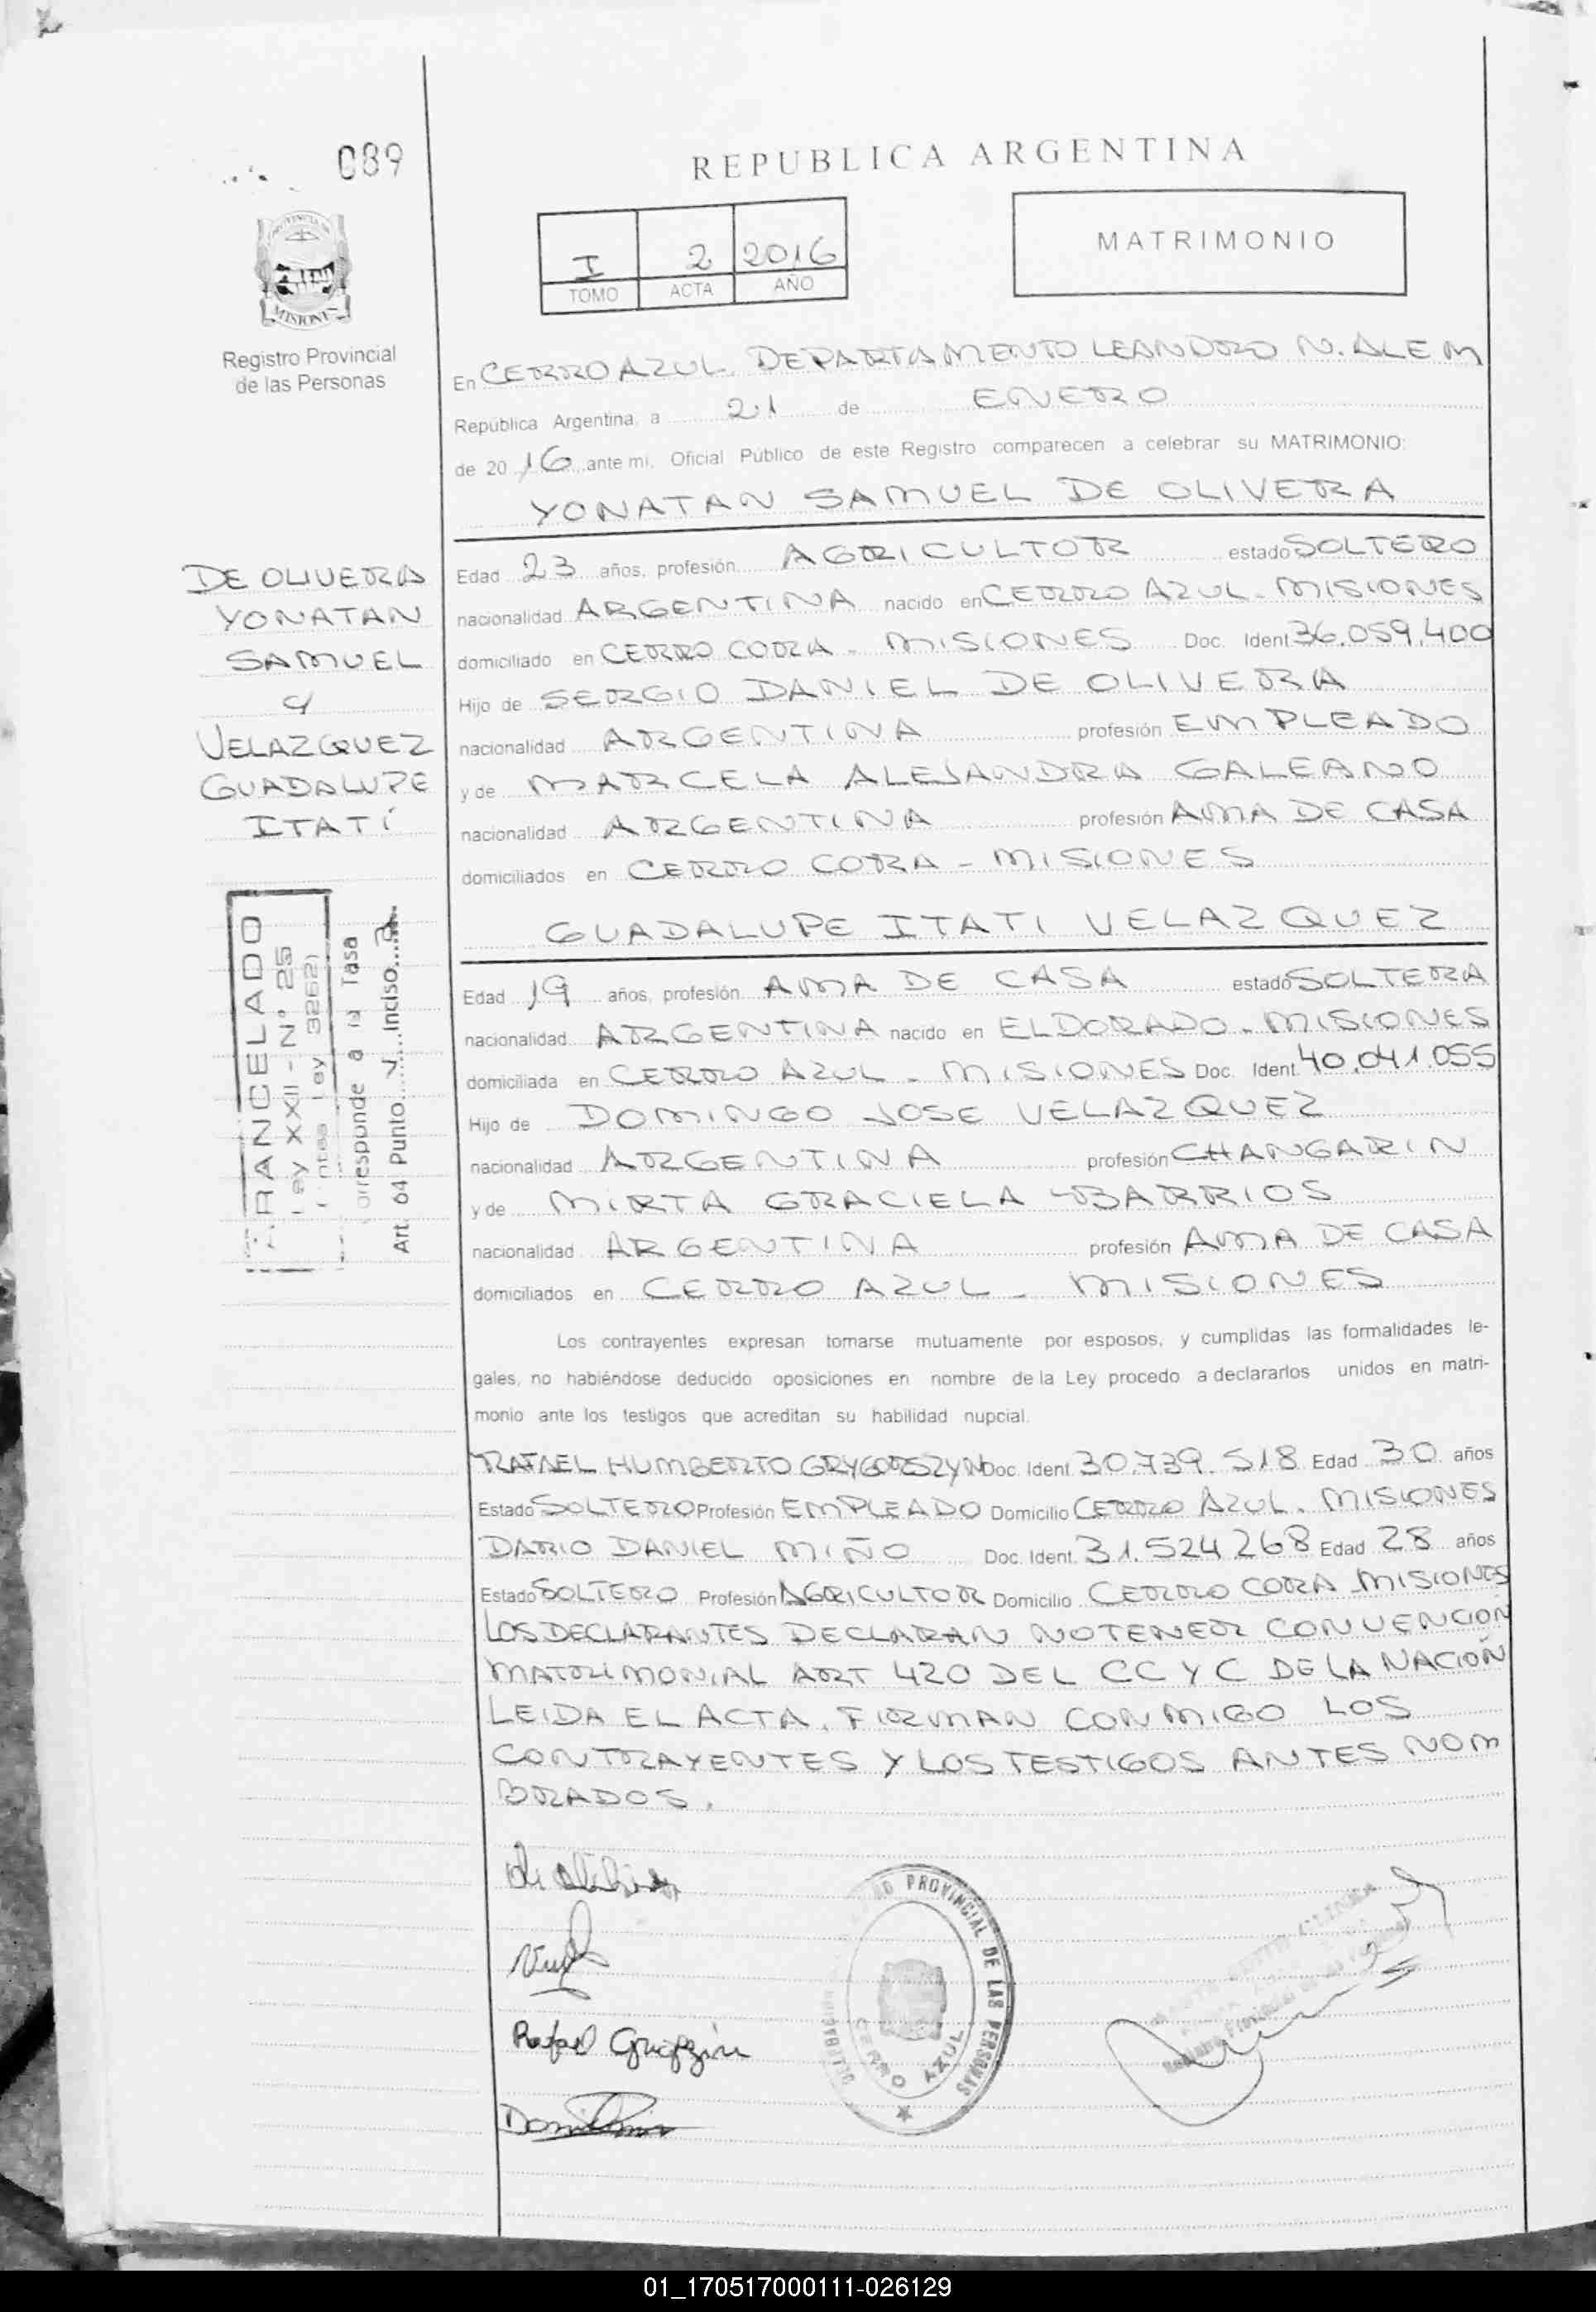 089
REPUBLICA ARGENTINA
I 2 2016
TOMO ACTA AÑO
MATRIMONIO
PROVINCIA DE
MISIONES
Registro Provincial
de las Personas
En CERRO AZUL DEPARTAMENTO LEANDRO N. ALEM
República Argentina, a 21 de ENERO
de 20 16 ante mi, Oficial Público de este Registro comparecen a celebrar su MATRIMONIO:
YONATAN SAMUEL DE OLIVERA
DE OLIVERA
YONATAN
SAMUEL
VELAZQUEZ
GUADALUPE
ITATÍ
Edad 23 años, profesión AGRICULTOR estado SOLTERO
nacionalidad ARGENTINA nacido en CERRO AZUL - MISIONES
domiciliado en CERRO CORA - MISIONES Doc. Ident. 36.059.400
Hijo de SERGIO DANIEL DE OLIVERA
nacionalidad ARGENTINA profesión EMPLEADO
y de MARCELA ALEJANDRA GALEANO
nacionalidad ARGENTINA profesión AMA DE CASA
domiciliados en CERRO CORA - MISIONES
GUADALUPE ITATI VELAZQUEZ
Edad 19 años, profesión AMA DE CASA estado SOLTERA
nacionalidad ARGENTINA nacido en ELDORADO - MISIONES
domiciliada en CERRO AZUL - MISIONES Doc. Ident. 40.041.055
Hijo de DOMINGO JOSE VELAZQUEZ
nacionalidad ARGENTINA profesión CHANGARIN
y de MIRTA GRACIELA BARRIOS
nacionalidad ARGENTINA profesión AMA DE CASA
domiciliados en CERRO AZUL - MISIONES
ARANCELADO
Ley XXII - N° 25
Ley 3262)
orresponde a la Tasa
Art. 64 Punto V Inciso
Los contrayentes expresan tomarse mutuamente por esposos, y cumplidas las formalidades le-
gales, no habiéndose deducido oposiciones en nombre de la Ley procedo a declararlos unidos en matri-
monio ante los testigos que acreditan su habilidad nupcial.
RAFAEL HUMBERTO GRYGORSZYN Doc. Ident. 30.739.518 Edad 30 años
Estado SOLTERO Profesión EMPLEADO Domicilio CERRO AZUL - MISIONES
DARIO DANIEL MIÑO Doc. Ident. 31.524.268 Edad 28 años
Estado SOLTERO Profesión AGRICULTOR Domicilio CERRO CORA - MISIONES
LOS DECLARANTES DECLARAN NO TENER CONVENCION
MATRIMONIAL ART 420 DEL CC Y C DE LA NACIÓN
LEIDA EL ACTA, FIRMAN CONMIGO LOS
CONTRAYENTES Y LOS TESTIGOS ANTES NOM
BRADOS.
PROVINCIAL DE LAS PERSONAS
CERRO AZUL
01_170517000111-026129